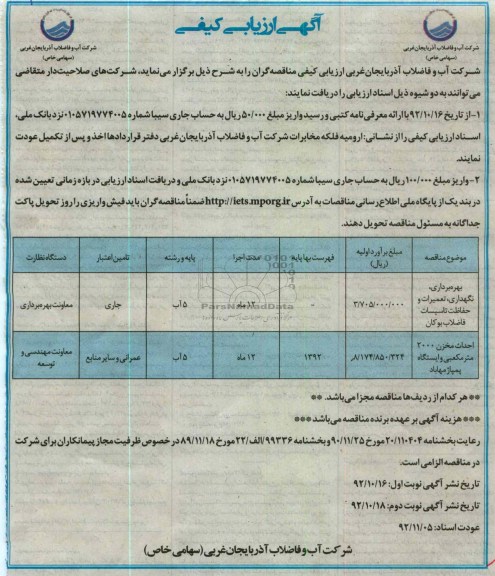 آگهی ارزیابی کیفی
شرکت آب و فاضلاب آذربایجان غربی
(سهامی خاص)
شرکت آب و فاضلاب آذربایجان غربی
(سهامی خاص)
شرکت آب و فاضلاب آذربایجان غربی ارزیابی کیفی مناقصه گران را به شرح ذیل برگزار می نماید، شرکت های صلاحیت دار متقاضی
می توانند به دو شیوه ذیل اسناد ارزیابی را دریافت نمایند:
۱-از تاریخ ۹۲/۱۰/۱۶ با ارائه معرفی نامه کتبی و رسید واریز مبلغ ۵۰/۰۰۰ ریال به حساب جاری سیبا شماره ۰۱۰۵۷۱۹۷۷۴۰۰۵ نزد بانک ملی،
اسناد ارزیابی کیفی را از نشانی: ارومیه فلکه مخابرات شرکت آب و فاضلاب آذربایجان غربی دفتر قراردادها اخذ و پس از تکمیل عودت
نمایند.
۲-واریز مبلغ ۱۰۰/۰۰۰ ریال به حساب جاری سیبا شماره ۰۱۰۵۷۱۹۷۷۴۰۰۵ نزد بانک ملی و دریافت اسناد ارزیابی در بازه زمانی تعیین شده
در بند یک از پایگاه ملی اطلاع رسانی مناقصات به آدرس http://iets.mporg.ir ضمناً مناقصه گران باید فیش واریزی را روز تحویل پاکت
جداگانه به مسئول مناقصه تحویل دهند.
موضوع مناقصه	مبلغ برآورد اولیه (ریال)	فهرست بها پایه	مدت اجرا	پایه و رشته	تامین اعتبار	دستگاه نظارت
بهره برداری، نگهداری، تعمیرات و حفاظت تاسیسات فاضلاب بوکان	۳/۷۰۵/۰۰۰/۰۰۰	-	۱۲ ماه	۵ آب	جاری	معاونت بهره برداری
احداث مخزن ۲۰۰۰ متر مکعبی و ایستگاه پمپاژ مهاباد	۸/۱۷۴/۸۵۰/۳۲۴	۱۳۹۲	۱۲ ماه	۵ آب	عمرانی و سایر منابع	معاونت مهندسی و توسعه
ParsNamadData
** هر کدام از ردیف ها مناقصه مجزا می باشد. **
*** هزینه آگهی بر عهده برنده مناقصه می باشد ***
رعایت بخشنامه ۲۰/۱۱۰۴۰۴ مورخ ۹۰/۱۱/۲۵ و بخشنامه ۹۹۳۳۶/الف/۲۲ مورخ ۸۹/۱۱/۱۸ در خصوص ظرفیت مجاز پیمانکاران برای شرکت
در مناقصه الزامی است.
تاریخ نشر آگهی نوبت اول: ۹۲/۱۰/۱۶
تاریخ نشر آگهی نوبت دوم: ۹۲/۱۰/۱۸
عودت اسناد: ۹۲/۱۱/۰۵
شرکت آب و فاضلاب آذربایجان غربی (سهامی خاص)